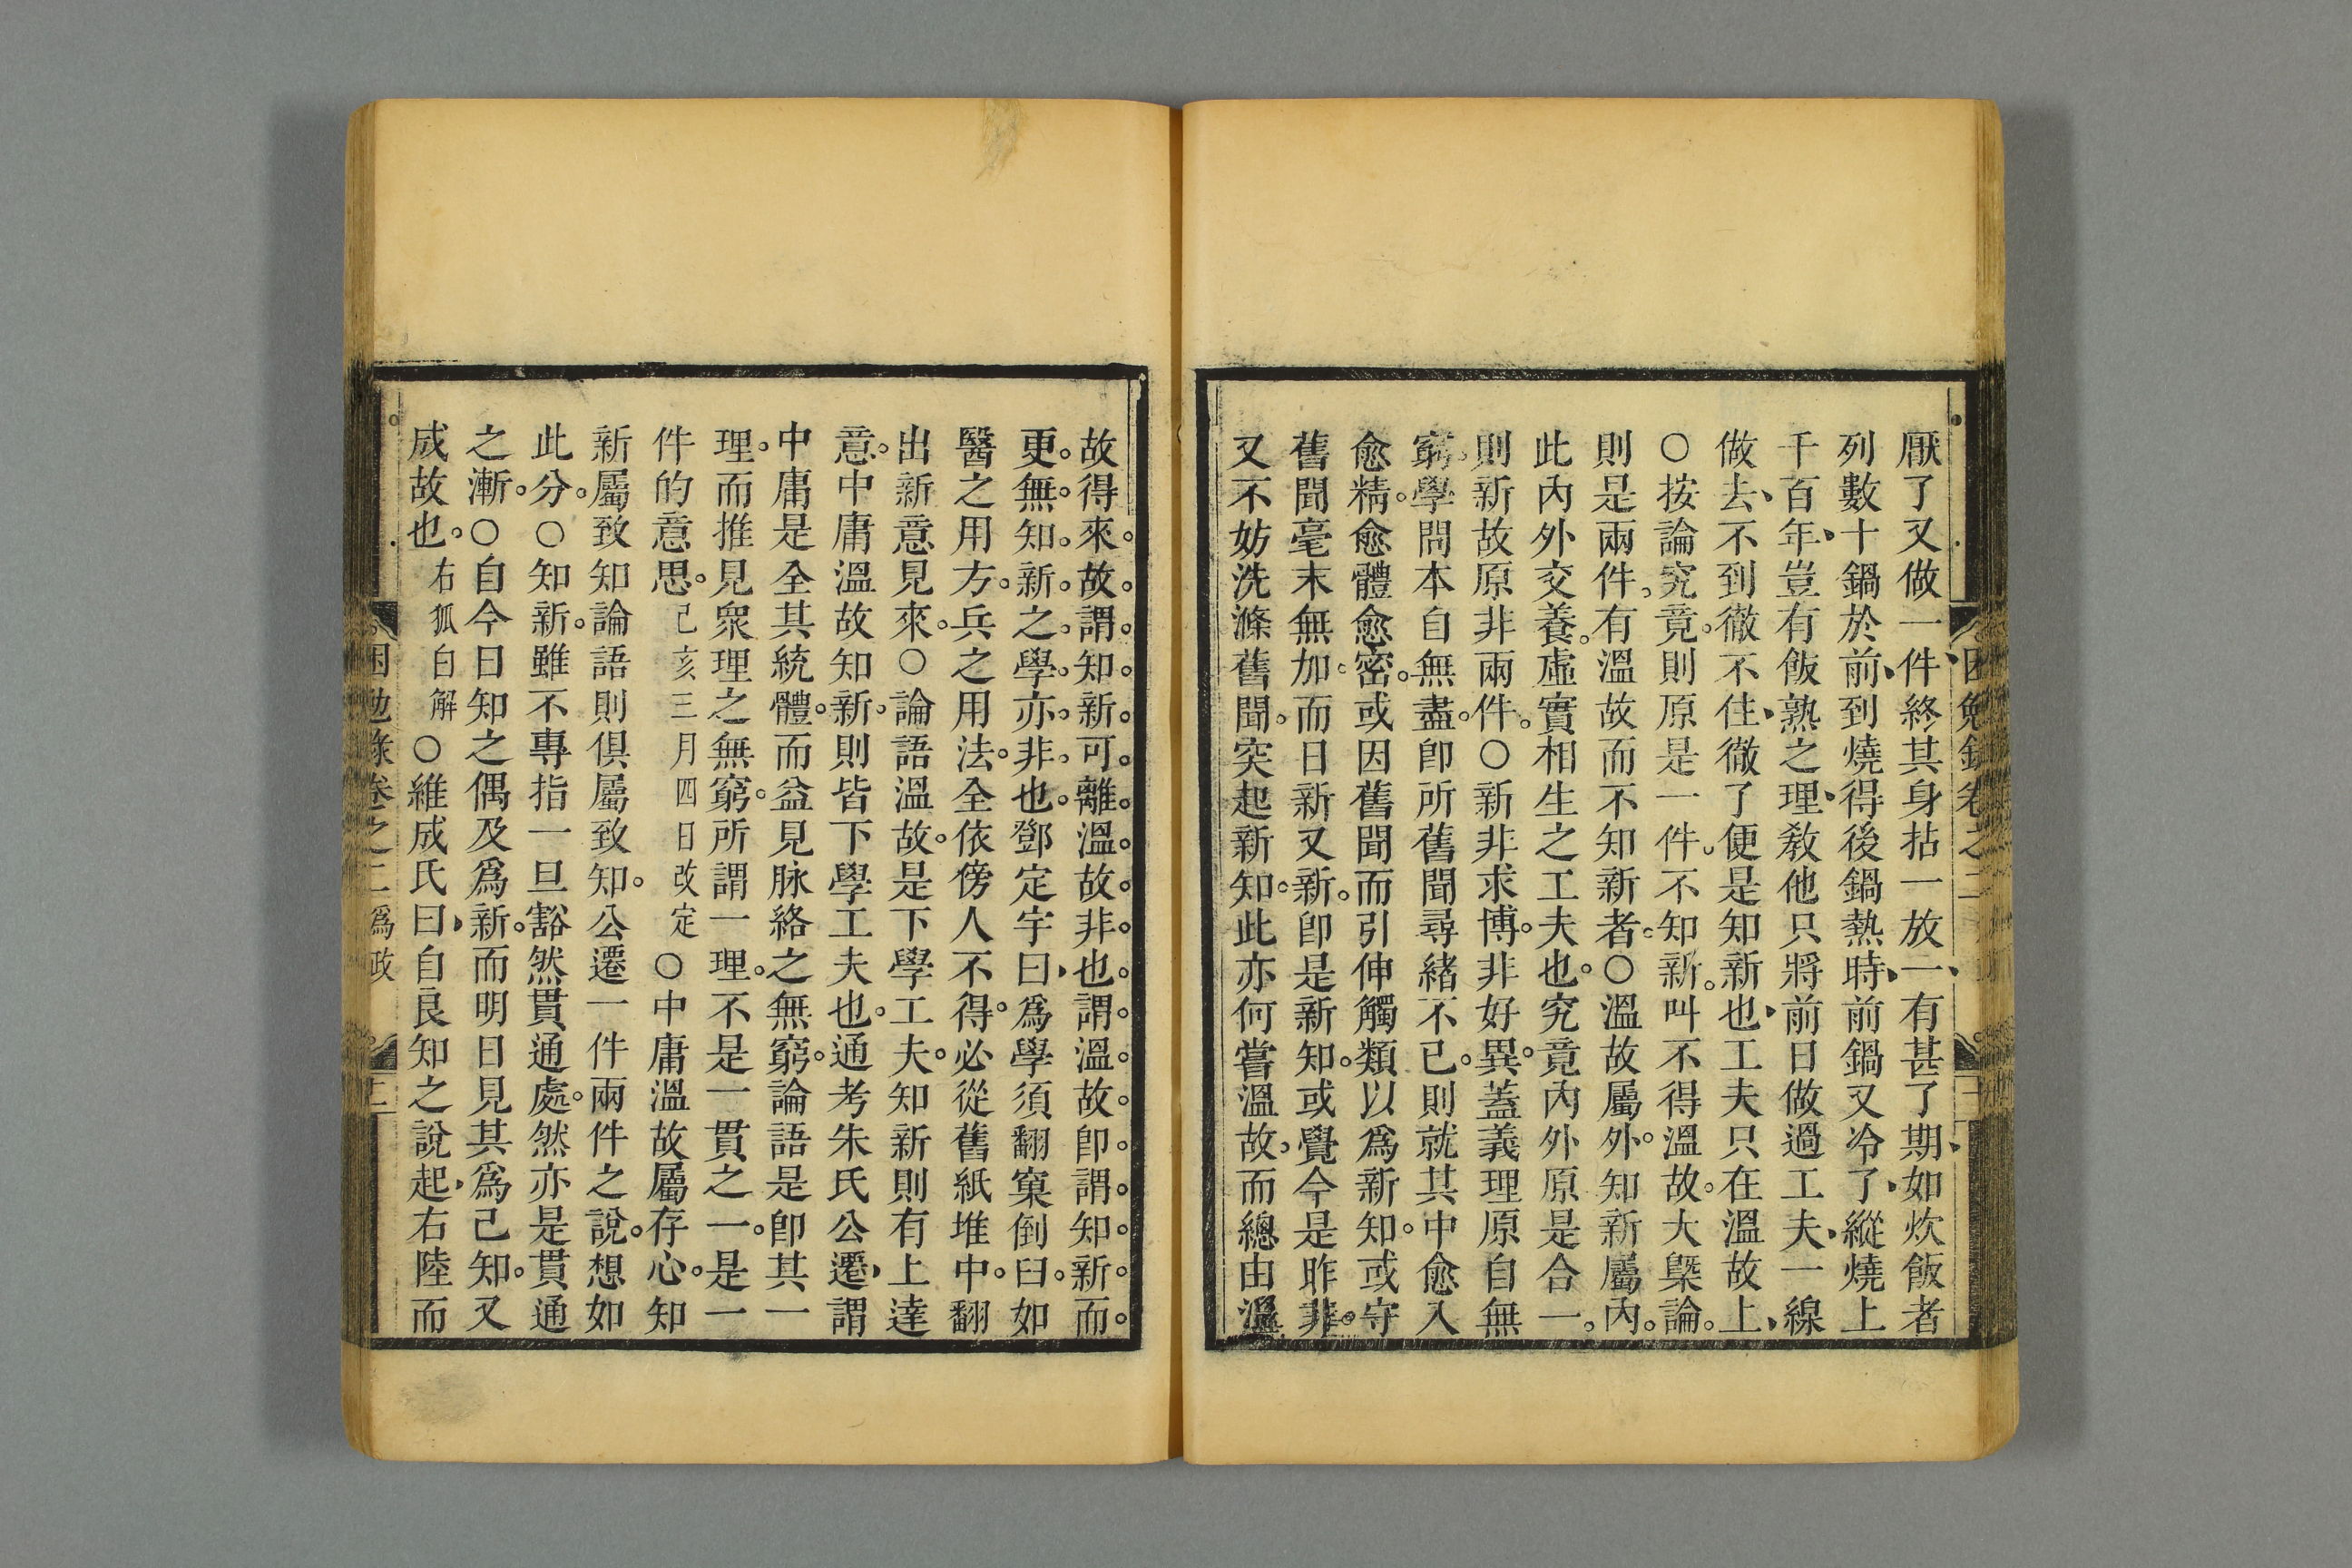 厭了又做一件終其身拈一放一有甚了期如炊飯者
列數十鍋於前到燒得後鍋熱時前鍋又冷了縱燒上
千百年豈有飯熟之理敎他只將前日做過工夫一線
做去不到徹不住徹了便是知新也工夫只在溫故上
○按論究竟則原是一件不知新叫不得溫故大槩論
則是兩件有溫故而不知新者○溫故屬外知新屬內
此內外交養虛實相生之工夫也究竟內外原是合一
則新故原非兩件○新非求博非好異蓋義理原自無
窮學問本自無盡卽所舊聞尋緒不已則就其中愈入
愈精愈體愈密或因舊聞而引伸觸類以爲新知或守
舊聞毫末無加而日新又新卽是新知或覺今是昨非
又不妨洗滌舊聞突起新知此亦何嘗溫故而總由溫
困勉錄卷之二
故得來故謂知新可離溫故非也謂溫故卽謂知新而
更無知新之學亦非也鄧定宇曰爲學須翻窠倒臼如
醫之用方兵之用法全依傍人不得必從舊紙堆中翻
出新意見來○論語溫故是下學工夫知新則有上達
意中庸溫故知新則皆下學工夫也通考朱氏公遷謂
中庸是全其統體而益見脉絡之無窮論語是卽其一
理而推見衆理之無窮所謂一理不是一貫之一是一
件的意思己亥三月四日改定○中庸溫故屬存心知
新屬致知論語則俱屬致知公遷一件兩件之說想如
此分○知新雖不專指一旦豁然貫通處然亦是貫通
之漸○自今日知之偶及爲新而明日見其爲己知又
成故也右狐白解○維成氏曰自良知之說起右陸而
困勉錄卷之二 爲政 十二